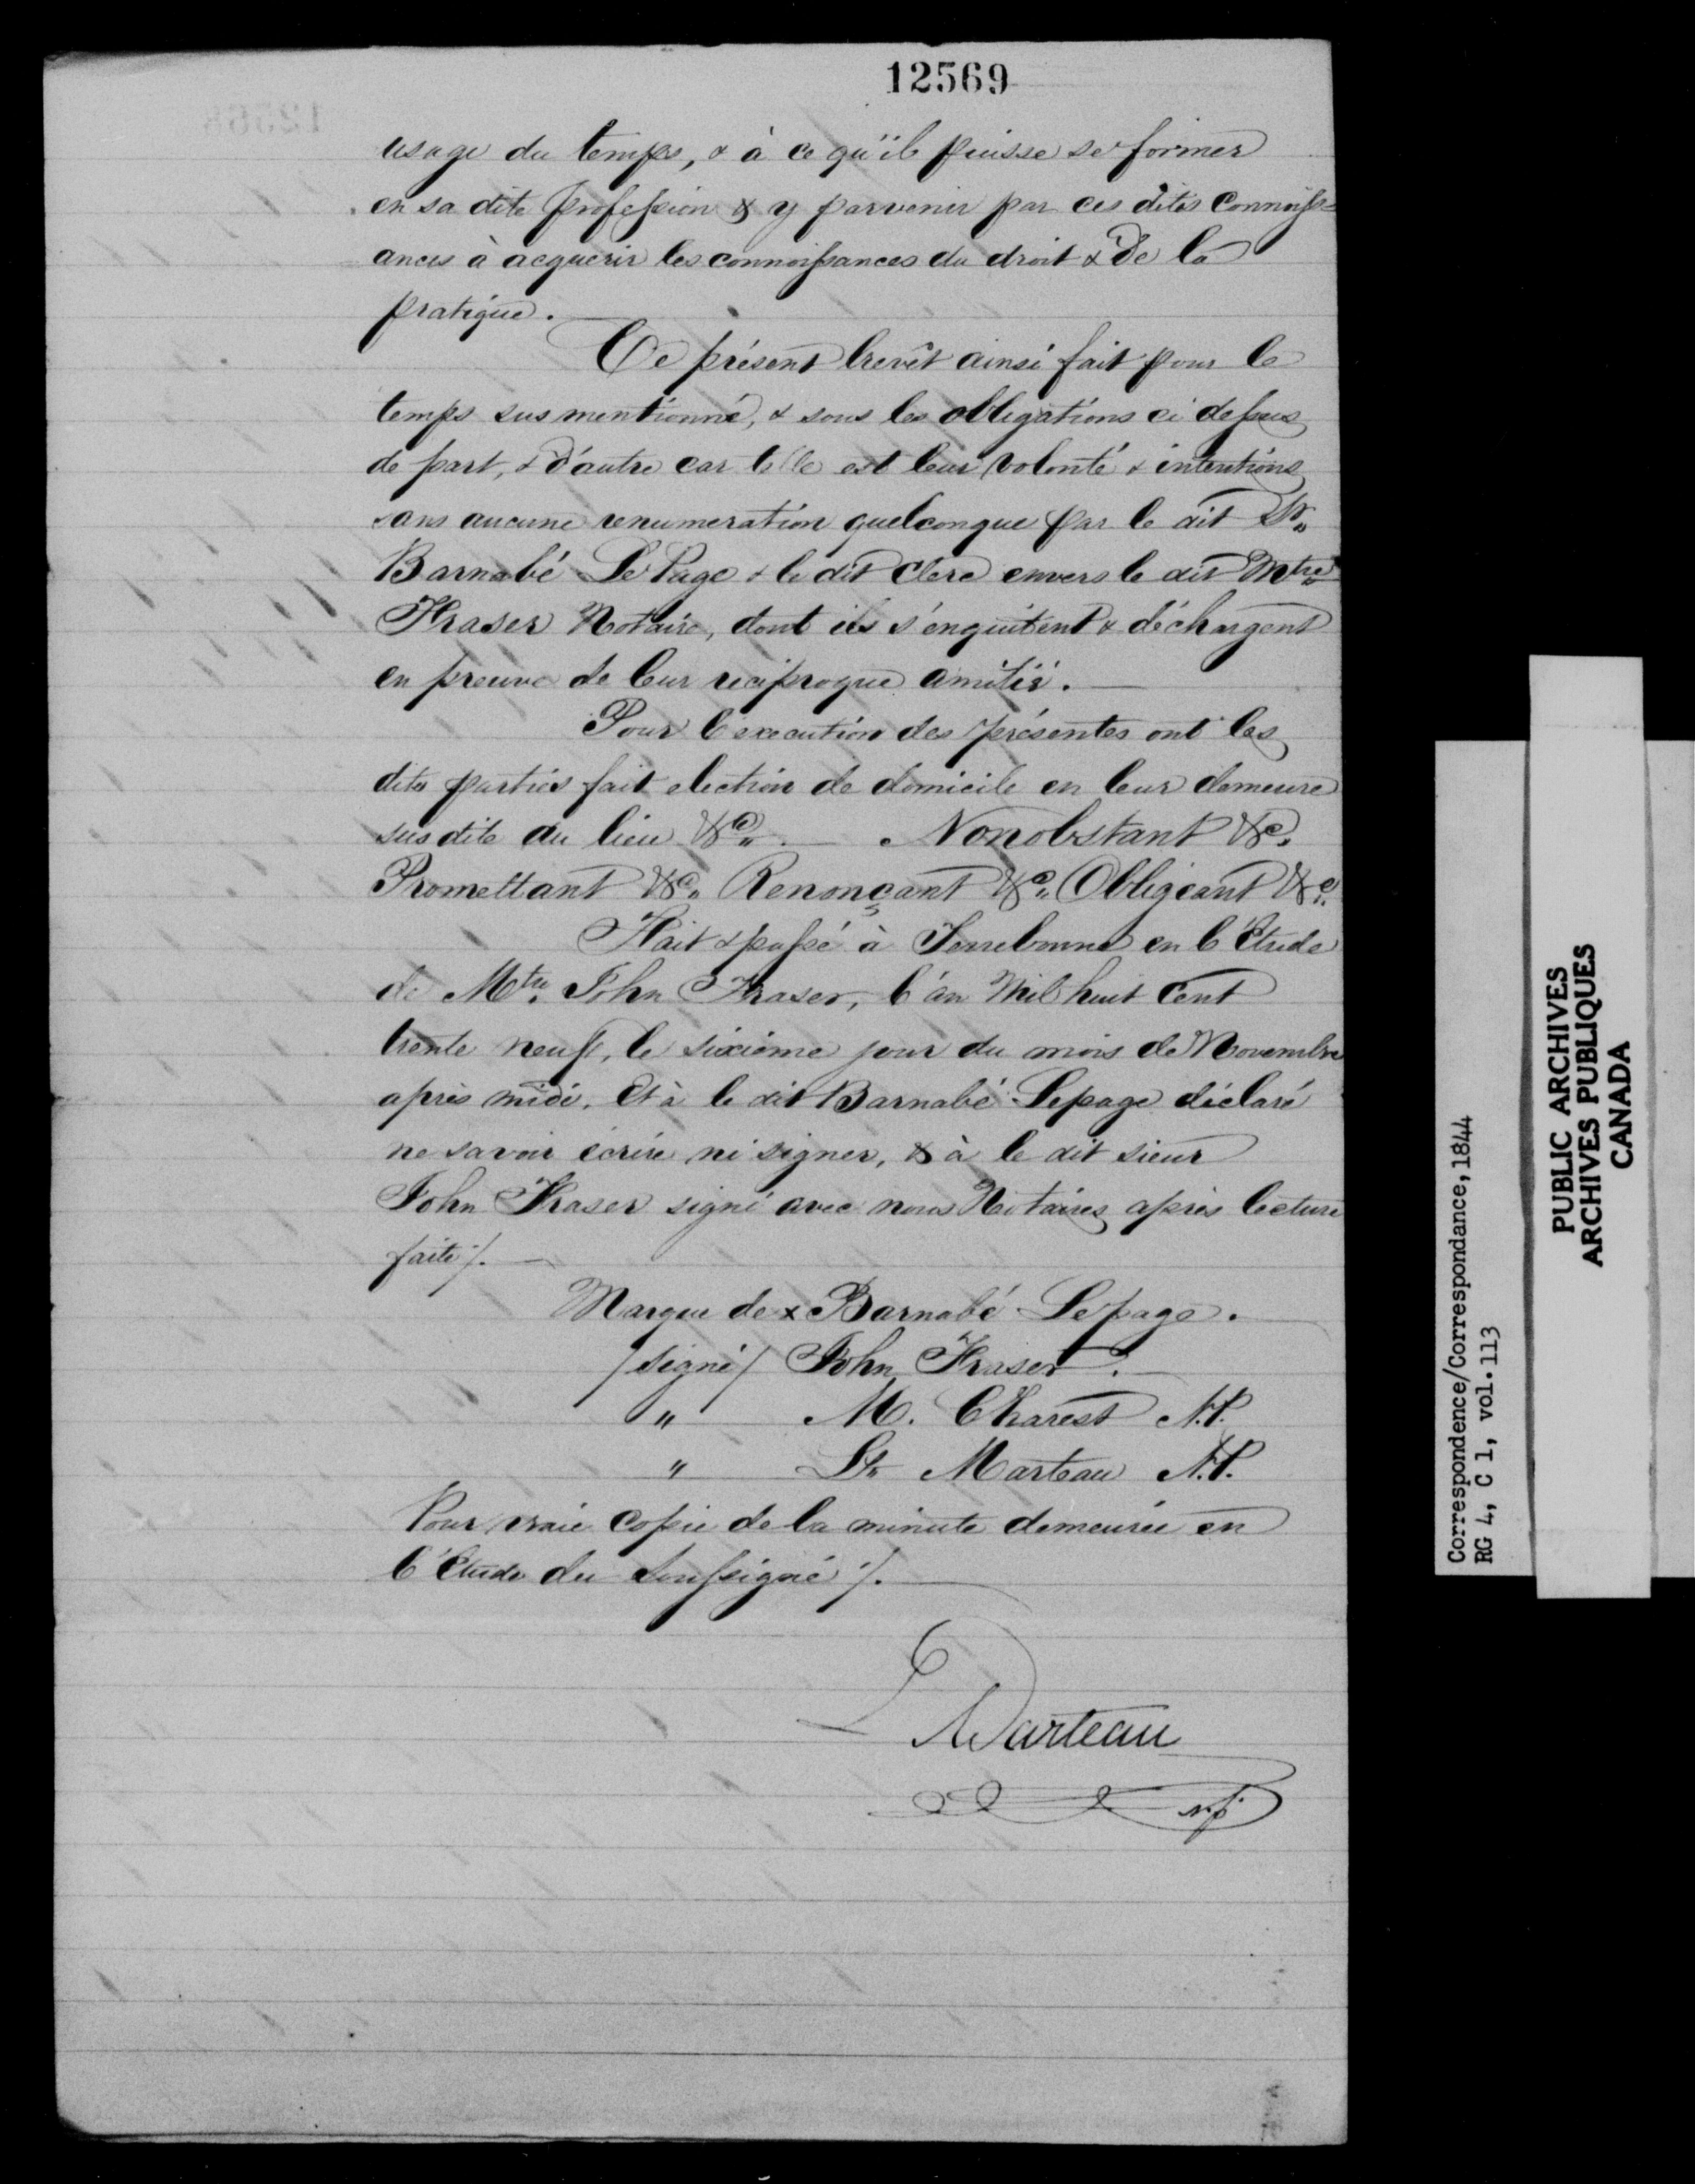 12569
usage du temps, & à ce qu'il puisse se former
en sa dite profession & y parvenir par ces dites connoiss=
ances à acquerir les connoissances du droit & de la
pratique.
Ce présent brevêt ainsi fait pour le
temps sus mentionné, & sous les obligations ci dessus
de part, & d'autre car telle est leur volonté & intentions
sans aucune renumeration quelconque par le dit Sr.
Barnabé LePage & le dit Clerc envers le dit Mtre
Fraser Notaire, dont ils s'enquitent & déchargent
en preuve de leur réciproque amitié.
Pour l'execution des présentes ont les
dites parties fait election de domicile en leur demeure
susdite au lieu &c. Nonobstant &c.
Promettant &c. Renonçant &c. Obligeant &c.
Fait & passé à Terrebonne en l'Etude
de Mtre. John Fraser, l'an Mil huit Cent
trente neuf, le sixième jour du mois de Novembre
après midi. Et à le dit Barnabé Lepage déclaré
ne savoir écrire ni signer, & à le dit sieur
John Fraser signé avec nous Notaires après lecture
faite /.
Marque de x Barnabé Lepage.
/signé/ John Fraser.
" M. Charest N.P.
" Ls. Marteau N.P.
Pour vraie Copie de la minute demeurée en
l'Etude du Soussigné /.
L Marteau
n.p.
Correspondence/Correspondance, 1844
RG 4, C 1, vol. 113
PUBLIC ARCHIVES
ARCHIVES PUBLIQUES
CANADA